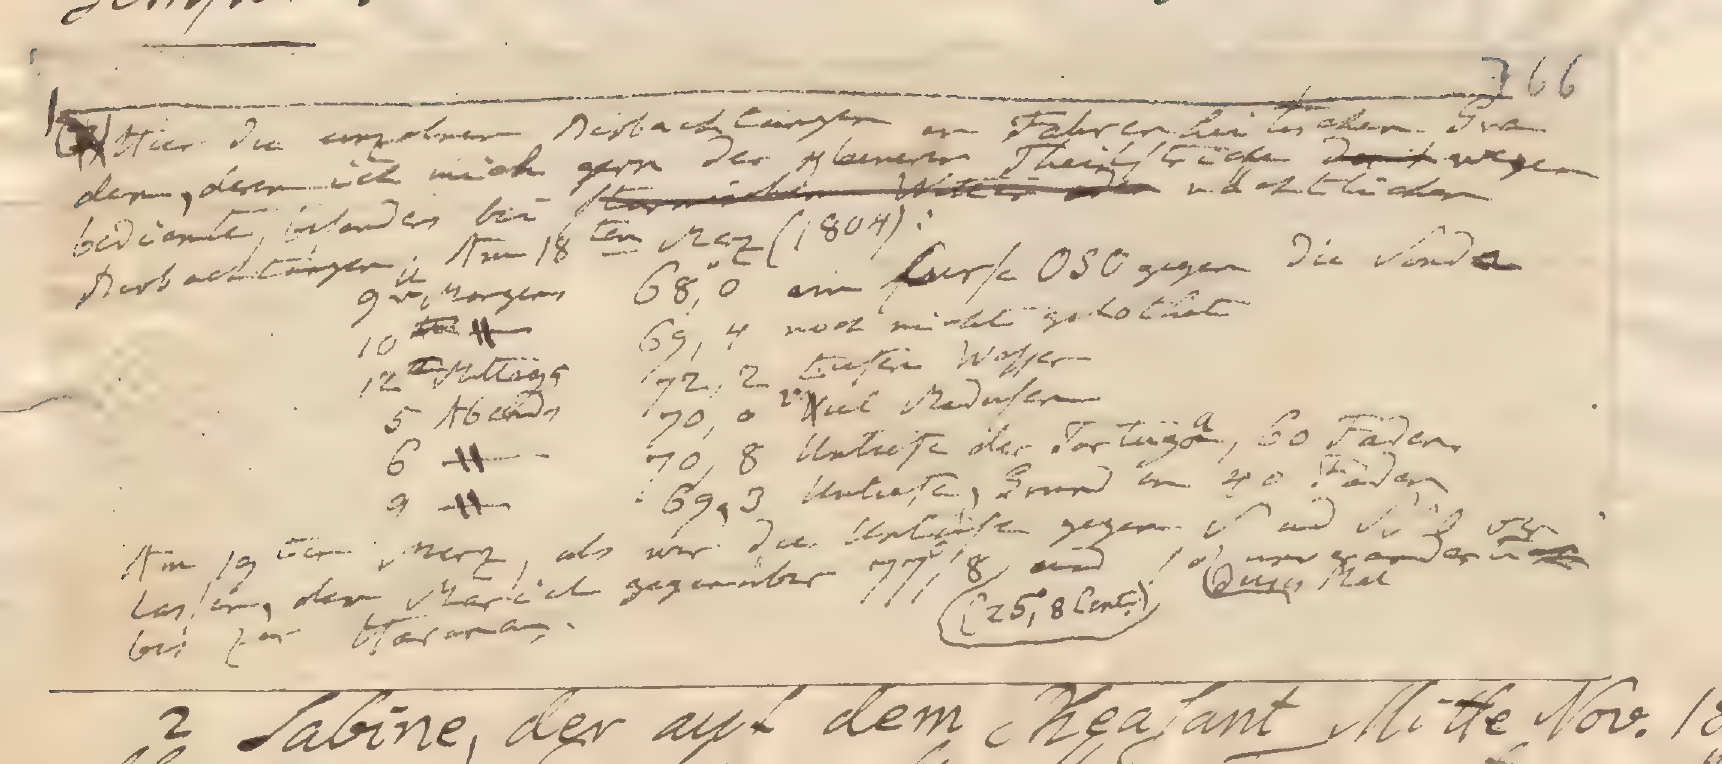 366
1) Hier die einzelnen Beobachtungen in Fahrenheitischen Gra
den, deren ich mich gern der kleineren Theilstriche wegen
bediente, besonders bei nächtlichen
Beobachtungen. Am 18ten Merz (1804):
9 u Morgens 68,°0 im Curse OSO gegen die Sonda
10 " 69,4 noch nicht gelothet
12 Mittags 72,2 tiefes Wasser
5 Abends 70,0 viel Medusen
6 " 70,8 Untiefe der Tortuga, 60 Faden
9 " 69,3 Untiefe, Grund in 40 Faden
Am 19ten Merz, als wir die Untiefe gegen S und SO ver
lassen, dem Mariel gegenüber 77°,8 und so unverändert
(25°,8 Cent.)
bis zur Havana.
2 Sabine, der auf dem Pheasant Mitte Nov. 18